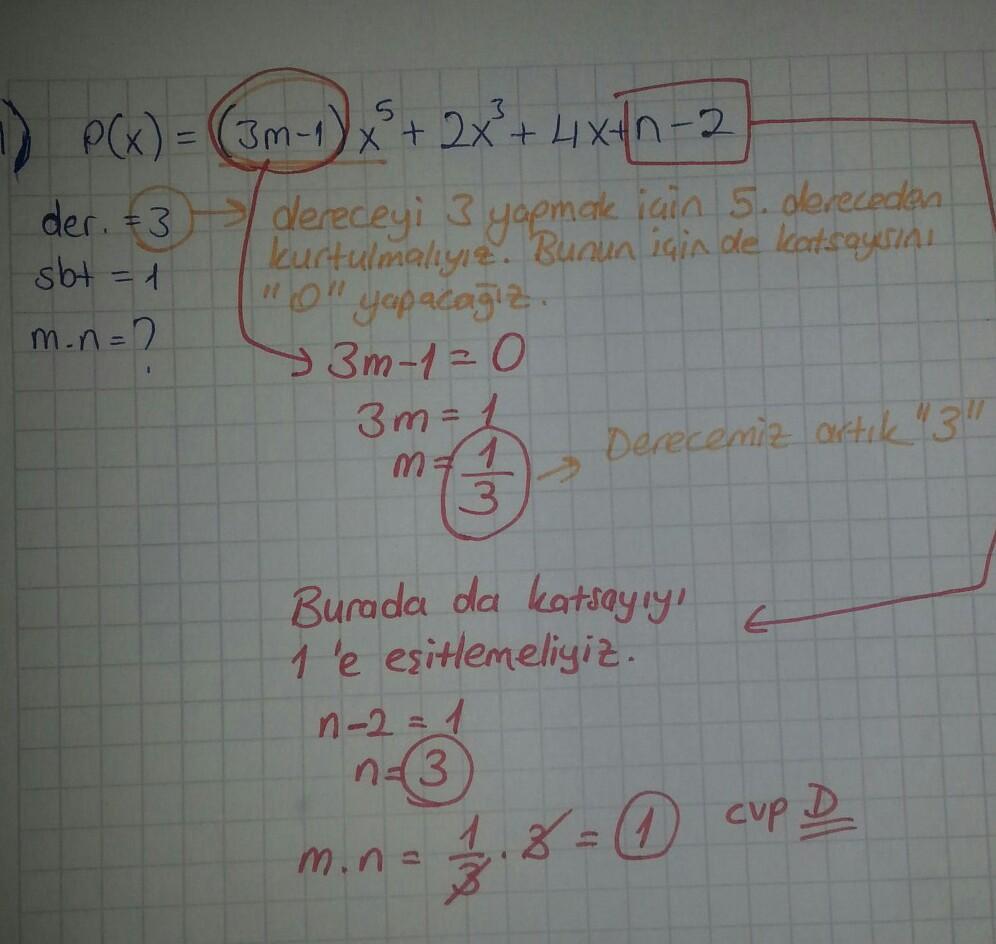 1) P(x) = (3m-1)x⁵ + 2x³ + 4x + n-2
der. = 3 → dereceyi 3 yapmak için 5. dereceden
kurtulmalıyız. Bunun için de katsayısını
"0" yapacağız.
sbt = 1
m.n = ?
3m-1 = 0
3m = 1
m = 1/3 → Derecemiz artık "3"
Burada da katsayıyı
1'e eşitlemeliyiz.
n-2 = 1
n = 3
m.n = 1/3 . 3 = 1 cvp D